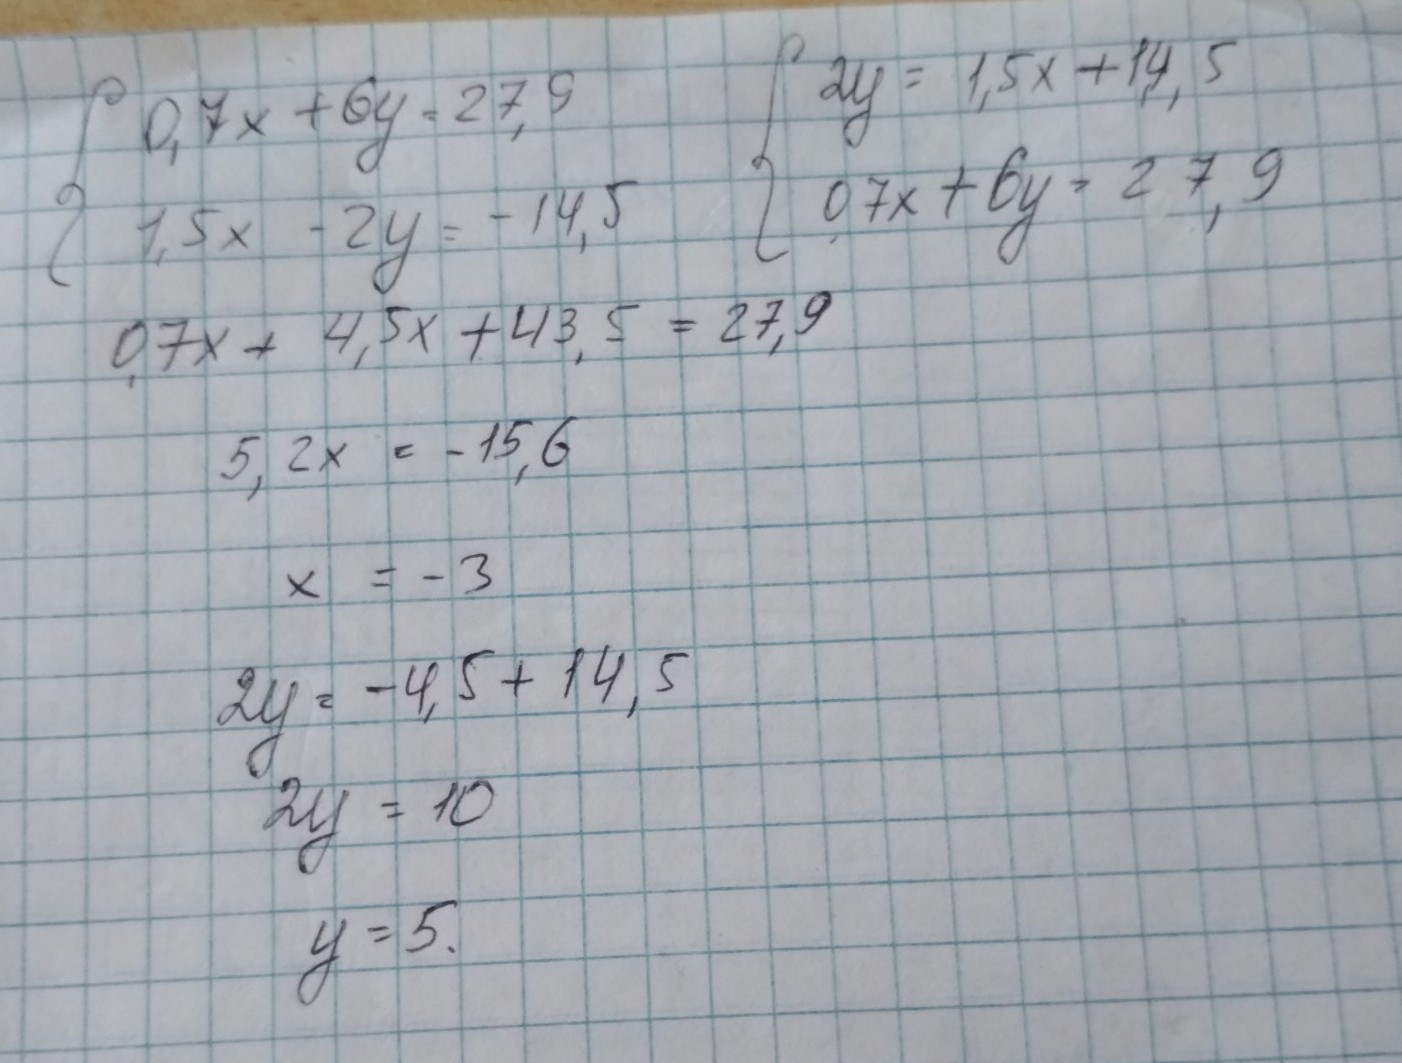 0,7x + 6y = 27,9
1,5x - 2y = -14,5
2y = 1,5x + 14,5
0,7x + 6y = 27,9
0,7x + 4,5x + 43,5 = 27,9
5,2x = -15,6
x = -3
2y = -4,5 + 14,5
2y = 10
y = 5.